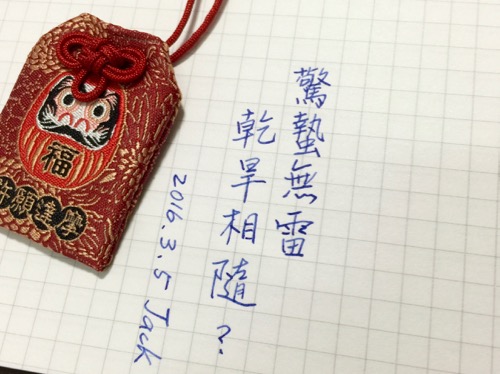 驚蟄無雷
乾旱相隨？
2016.3.5 Jack
福
許願達摩